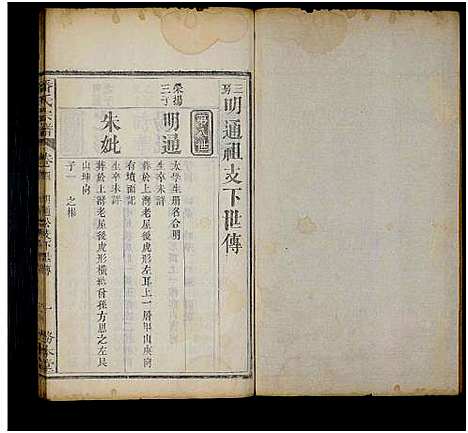 三房明通祖支下世傳
榮揚三子
明通
太學生册名合明
生卒未詳
有墳面記
葬於上灣老屋後虎形左耳上一層甲山庚向
朱妣
生卒未詳
葬於上灣老屋後虎形橫松首孫方恩之左艮
山坤向
子一 之根
氏宗譜
卷四
明通公支下世傳
一
堂